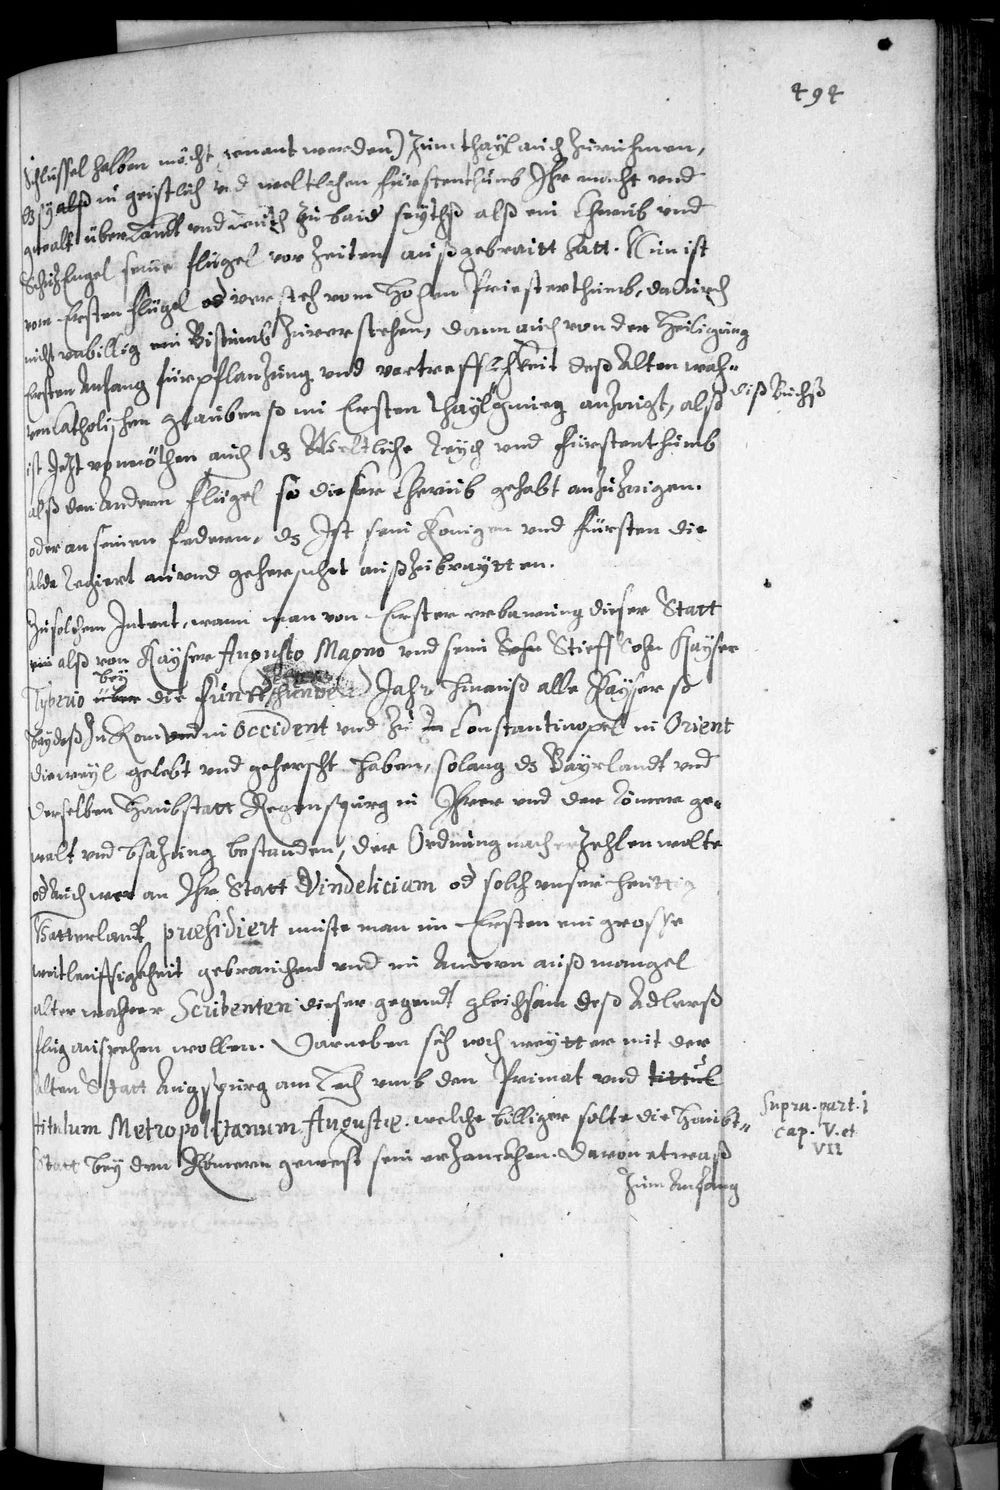 494
Schlüssel halben möcht genant werden) Zum thayl auch zurühmen,
dz sy alß in geistlich und weltlichen fürstenthumb Ihr macht und
gewalt über Landt und Leuth zu baid seyths alß ein Cherub und
SchutzEngel seine flügel vor zeiten außgebraitt hatt. Nun ist
vom Ersten flügel od versteh vom Hohen Priesterthumb, dadurch
nicht unbillig ein Bistumb zuverstehen, dann auch von der Heiligung
Ersten Anfang fürpflanzung und vortrefflichkeit deß Alten wah-
ren Catholischen glaubens im Ersten thayl gnueg anzaigt, alß
diß Buchs
ist Jetzt vonnöthen auch dz Weltliche Reych und fürstenthumb
alß den Andern flügel so dieser Cherub gehabt anzuzaigen.
oder an seinen federn, dz Ist sein Königen und fürsten die
alda Regiert und geherschet außzubraytten.
Zu solchem Intent, wann man von Erster erbawung dieser Statt
alß von Kayser Augusto Magno und sein Sohn Stieff Sohn Kayser
bey
Tyberio über die fünffhundert Jahr hinauß alle Kayser so
baydes Zu Rom und in Occident und zu Constantinopel in Orient
dieweyl gelebt und geherscht haben, solang dz Bayrlandt und
derselben Haubstatt Regenspurg in Ihrer und der Römer ge-
walt und bsazung bestanden, der Ordnung nach erzehlen wolte
od auch wer an Ihr Statt Vindeliciam od solch unser heuttig
Vatterlandt præsidiert müste man im Ersten ein grosse
weitleuffigkheit gebrauchen und im Andern auß mangel
alter wahrer Scribenten dieser gegendt gleichsam deß Adlerß
flug außspehen wollen. Darneben sich noch weytter mit der
Alten Statt Augspurg am Lech umb den Primat und tittul
titulum Metropolitanum Augustæ. welche billiger solte die Haubt-
Statt bey den Römern gewest sein erzanckhen. Davon etwaß
Supra. part. i
cap. V. et
VII
Zum Anfang